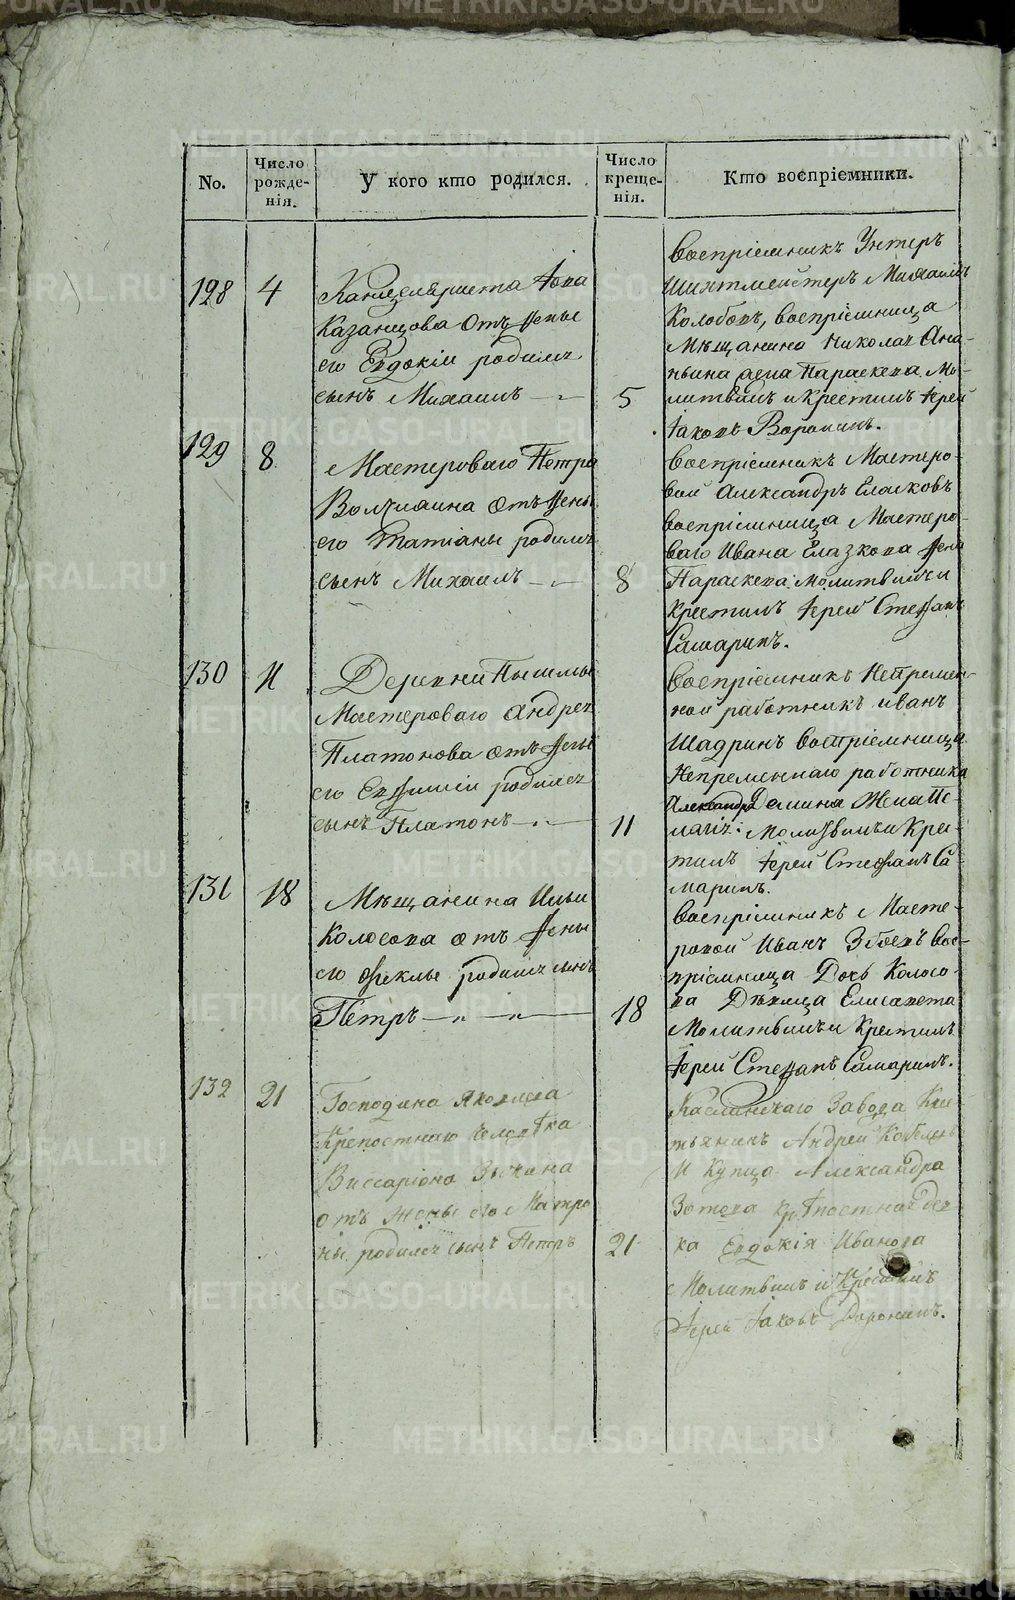 No.
Число рожде-нія.
У кого кто родился.
Число креще-нія.
Кто воспріемники.
128
4
Канцеляриста Іова
Казанцова отъ жены
его Евдокіи родился
сынъ Михаилъ
5
воспріемникъ Унтеръ
Шихтмейстеръ Михаилъ
Колобовъ, воспріемница
Мѣщанина Николая Ана-
ньина жена Параскева Мо-
литвилъ и крестилъ Іерей
Іаковъ
129
8
Мастероваго Петра
отъ жены
его Татіаны родился
сынъ Михаилъ
8
воспріемникъ Мастеро-
вой Александръ
воспріемница Мастеро-
ваго Ивана Глазкова жена
Параскева молитвилъ и
крестилъ Іерей Стефанъ
Самаринъ.
130
11
Деревни Пышмы
Мастероваго Андрея
Платонова отъ жены
его Евфиміи родился
сынъ Платонъ
11
воспріемникъ Непремен-
ной работникъ Иванъ
Шадринъ воспріемница
Непременнаго работника
Александра Демина Жена Пе-
лагія: Молитвилъ и Крес-
тилъ Іерей Стефанъ Са-
маринъ.
131
18
Мѣщанина Ильи
Колосова отъ жены
его Феклы родился сынъ
Петръ
18
воспріемникъ Масте-
ровой Иванъ Зобовъ вос-
пріемница Дочь Колосо-
ва Дѣвица Елисавета
Молитвилъ и Крестилъ
Іерей Стефанъ Самаринъ.
132
21
Господина Яковлева
Крепостнаго человѣка
Виссаріона Зыкина
отъ Жены его Матро-
ны родился сынъ Петръ
21
Каслинскаго Завода Кре-
стьянинъ Андрей
и Купца Александра
Зотова крѣпостная дев-
ка Евдокія Иванова
Молитвилъ и Крестилъ
Іерей Іаковъ
METRIKI.GASO-URAL.RU